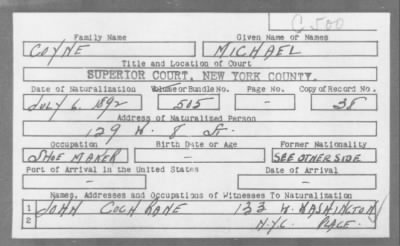 C500
Family Name Given Name or Names
COYNE MICHAEL
Title and Location of Court
SUPERIOR COURT, NEW YORK COUNTY.
Date of Naturalization Volume or Bundle No. Page No. Copy of Record No.
JULY 6. 1892 505 - 38
Address of Naturalized Person
129 W. 8 St.
Occupation Birth Date or Age Former Nationality
SHOE MAKER - SEE OTHER SIDE
Port of Arrival in the United States Date of Arrival
- -
Names, Addresses and Occupations of Witnesses To Naturalization
1 JOHN COCHRANE 133 W. WASHINGTON
2 N.Y.C. PLACE.